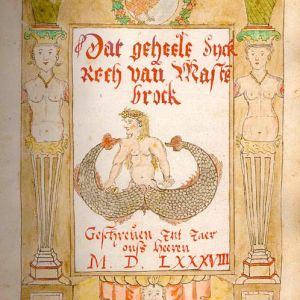 Dat geheele Dyck
Rech van Maste
brock
Geschreven Int Jaer
ons heeren
M. D. LXXXVIII